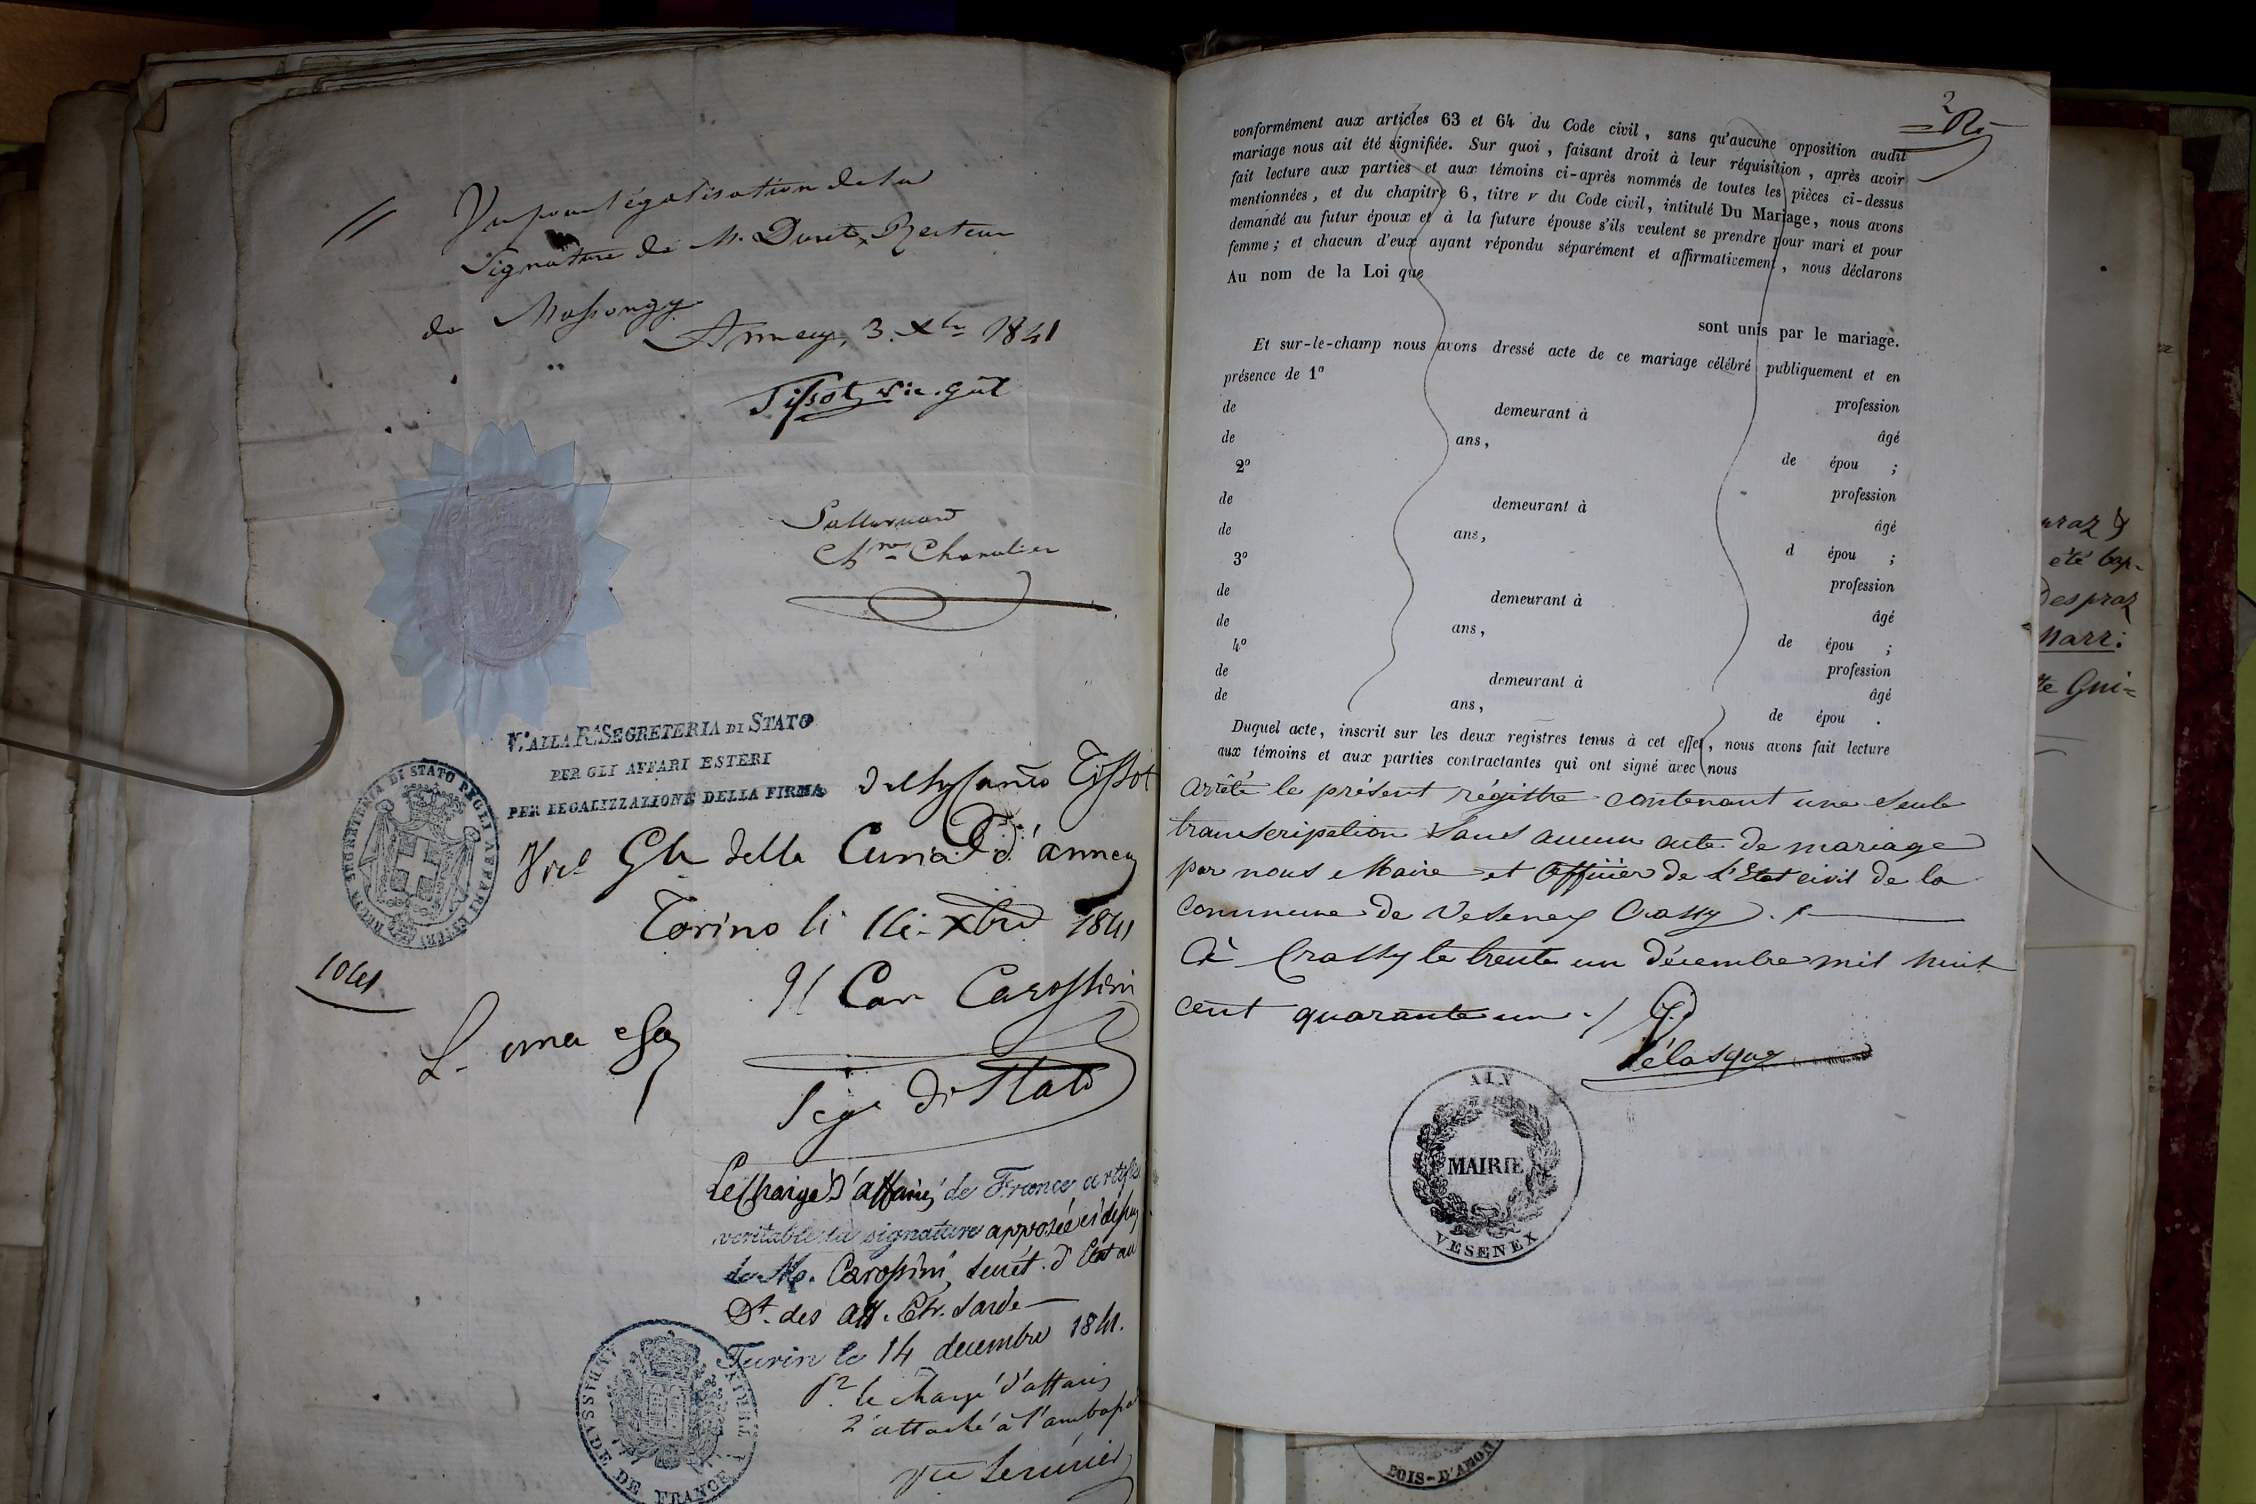 Vu pour légalisation de la
signature de M. Duret, Recteur
de Massongy.
Annecy, 3. Xbre 1841
Tissot, vic. gñl
Chne Chancelier
V.o ALLA R.A SEGRETERIA DI STATO
PER GLI AFFARI ESTERI
PER LEGALIZZAZIONE DELLA FIRMA
Tissot
REGIA SEGRETERIA DI STATO PEGLI AFFARI ESTERI
Gle della Curia d'annecy
Torino li Xbre 1841
1041
Il Cav Carossini
Segr di Stato
Le Chargé D'affaires de France certifie
veritable la signature apposée ci dessus
de M. Carossini, Secrét. d'Etat au
Dt. des aff. Etr. Sarde —
Turin le 14 decembre 1841.
Pr. le chargé d'affaires
L'attaché à l'ambassade
Vte
AMBASSADE DE FRANCE
2
conformément aux articles 63 et 64 du Code civil, sans qu'aucune opposition audit
mariage nous ait été signifiée. Sur quoi, faisant droit à leur réquisition, après avoir
fait lecture aux parties et aux témoins ci-après nommés de toutes les pièces ci-dessus
mentionnées, et du chapitre 6, titre v du Code civil, intitulé Du Mariage, nous avons
demandé au futur époux et à la future épouse s'ils veulent se prendre pour mari et pour
femme; et chacun d'eux ayant répondu séparément et affirmativement, nous déclarons
Au nom de la Loi que
sont unis par le mariage.
Et sur-le-champ nous avons dressé acte de ce mariage célébré publiquement et en
présence de 1o
de demeurant à profession
de ans, âgé
2o de épou ;
de demeurant à profession
de ans, âgé
3o d épou ;
de demeurant à profession
de ans, âgé
4o de épou ;
de demeurant à profession
de ans, âgé
de épou .
Duquel acte, inscrit sur les deux registres tenus à cet effet, nous avons fait lecture
aux témoins et aux parties contractantes qui ont signé avec nous
arrêté le présent régistre contenant une seule
transcription sans aucun acte de mariage
par nous Maire et Officier de l'Etat civil de la
commune de Vesenex Crassy
à Crassy le trente un décembre mil huit
cent quarante un
AIN
MAIRIE
VESENEX
été bap-
Despraz
Marr:
te Gui=
BOIS-D'AMON